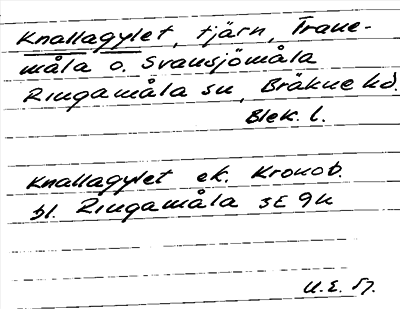 Knallagylet, tjärn, Trane-
måla o. Svansjömåla
Ringamåla sn, Bräkne hd.
Blek. l.
Knallagylet ek. Kronob.
bl. Ringamåla 3E 9h
U.E. 57.